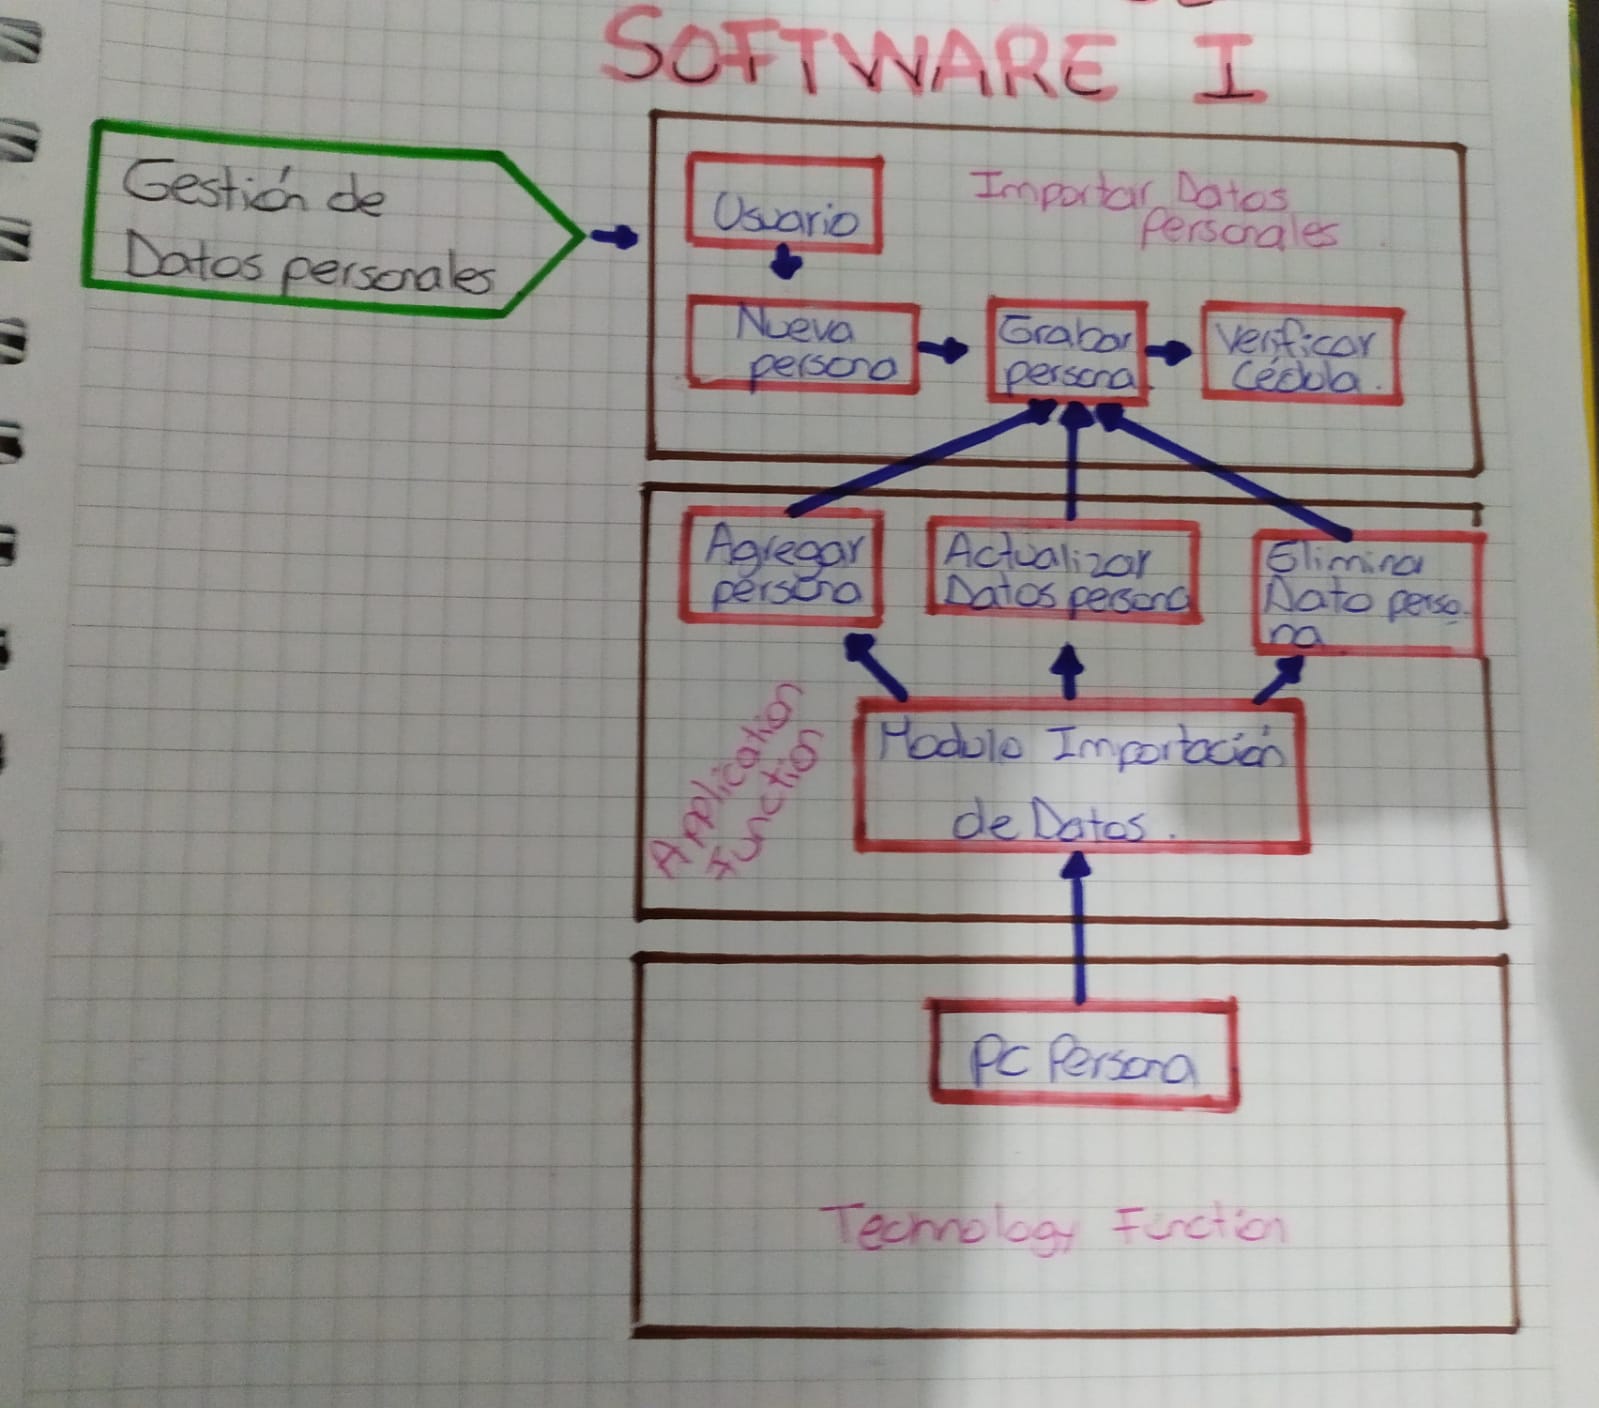 SOFTWARE I
Gestión de
Datos personales
Usuario
Importar Datos
Personales
Nueva
persona
Grabar
persona.
Verificar
Cédula.
Agregar
persona
Actualizar
Datos persona
Elimina
Dato perso-
na
Application
Function
Modulo Importación
de Datos.
PC Persona
Technology Function